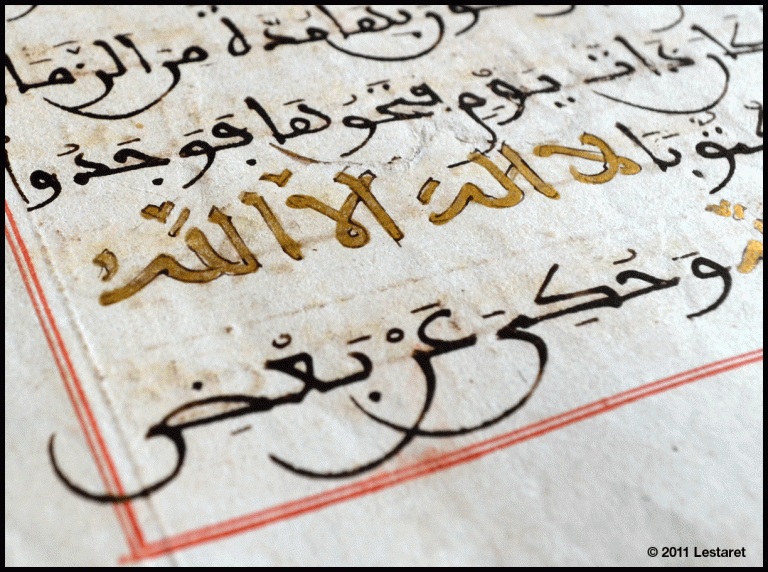 مُدَّة مِنَ الزَّمَا
كَانَ ذَاتَ يَوْمٍ فَتَحُوهَا فَوَجَدُوا
لا اله الا اللهُ
وَحُكِيَ عَنْ بَعْضِ
© 2011 Lestaret